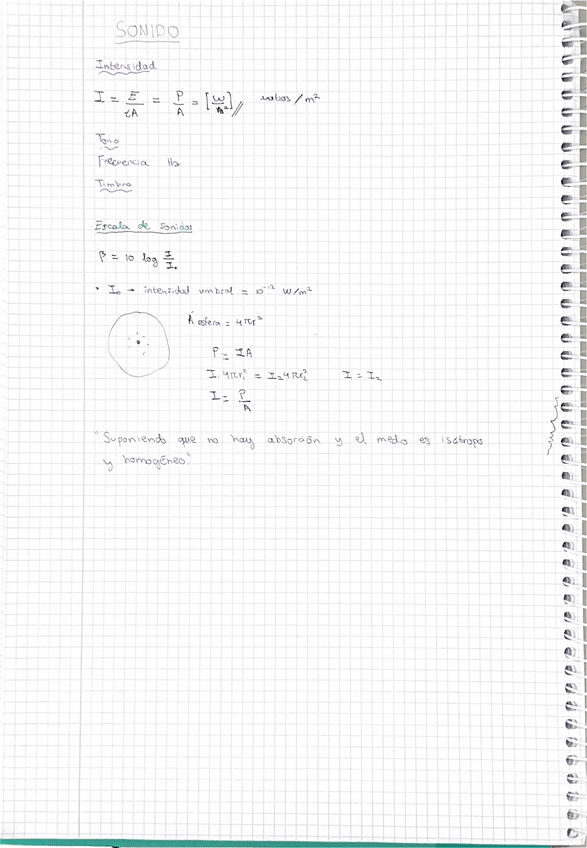 SONIDO
Intensidad
I = E/tA = P/A = [W/m²] watios/m²
Tono
Frecuencia Hz
Timbre
Escala de sonidos
β = 10 log I/I₀
• I₀ → intensidad umbral = 10⁻¹² W/m²
A esfera = 4πr²
P = IA
I₁ 4πr₁² = I₂ 4πr₂² I = I₂
I = P/A
"Suponiendo que no hay absorción y el medio es isótropo
y homogéneo"